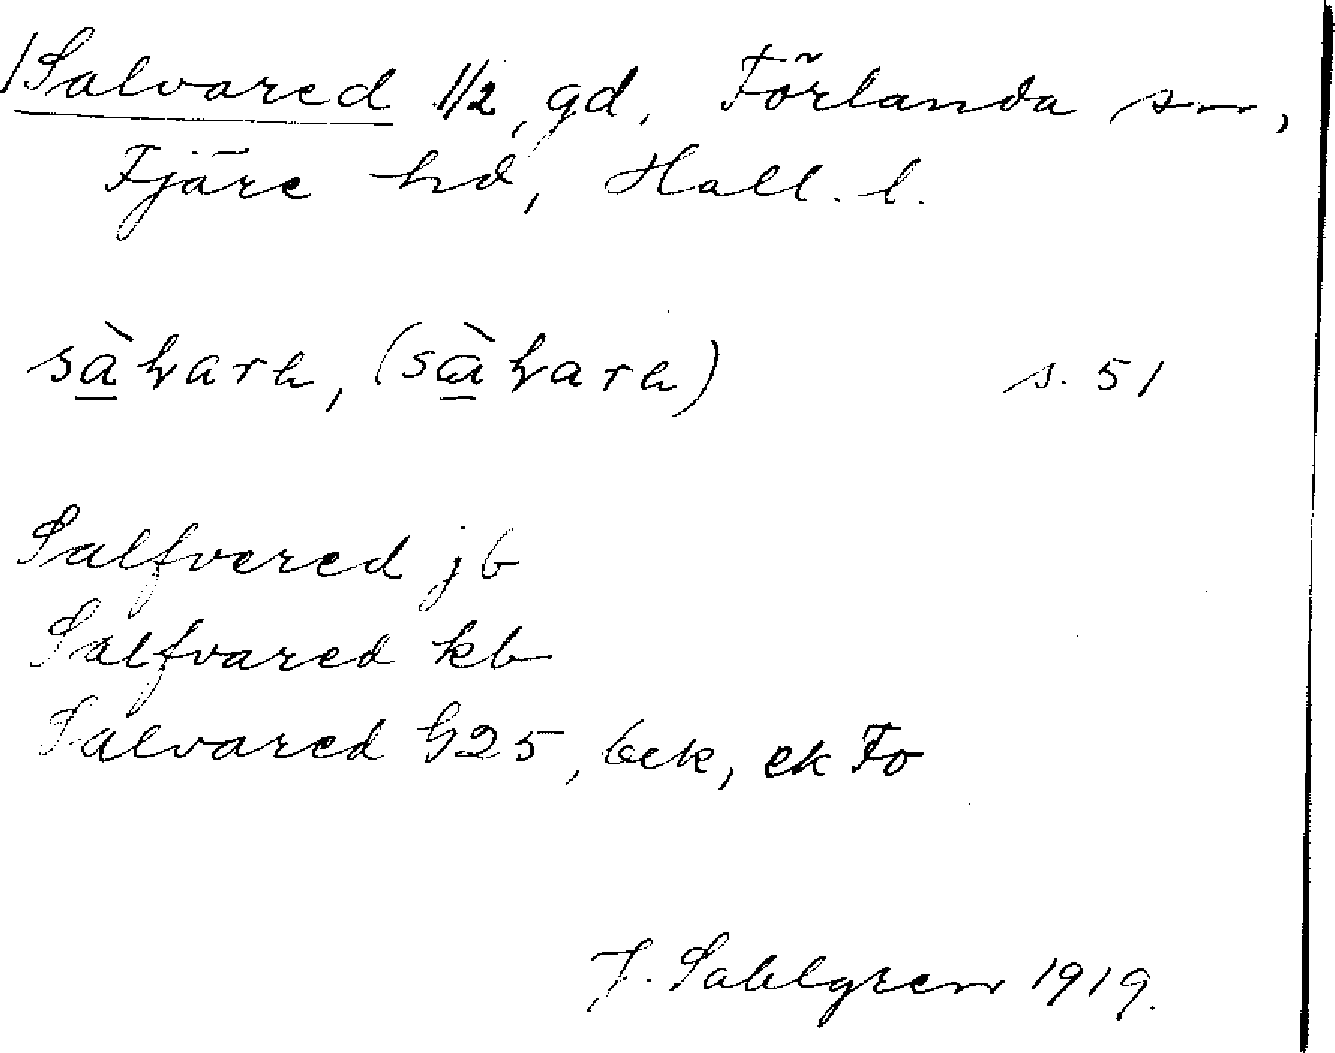 /Salvared 1/2, gd, Förlanda sn,
Fjäre hd, Hall. l.
s. 51
Salfvered jb
Salfvared kb
Salvared G25, bek, ek Fo
J. Sahlgren 1919.